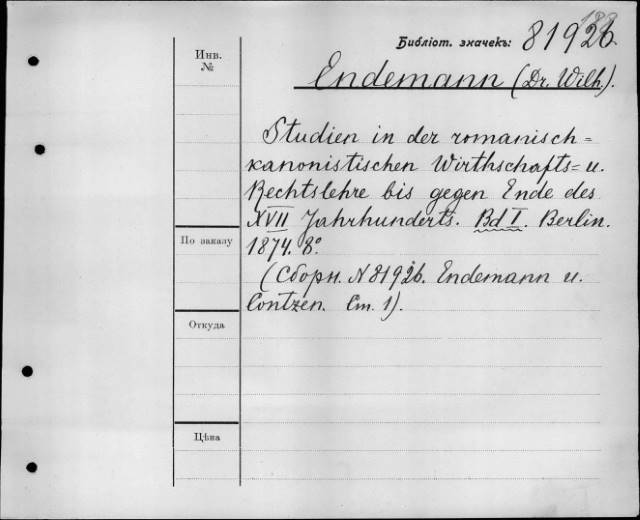 Библіот. значекъ: 8192б.
188
Инв.
№
Endemann (Dr. Wilh).
Studien in der romanisch=
kanonistischen Wirthschafts= u.
Rechtslehre bis gegen Ende des
XVII Jahrhunderts. Bd I. Berlin.
1874. 8°.
(Сборн. № 8192б. Endemann u.
Contzen. Ст. 1).
По заказу
Откуда
Цѣна